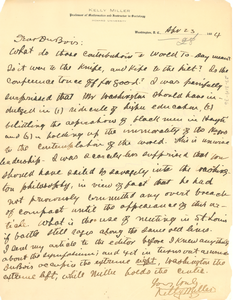 KELLY MILLER
Professor of Mathematics and Instructor in Sociology
Apr 23, 04
Dear Du Bois:
What do those contributions to World To-day mean?
Is it war to the knife, and knife to the hilt? Is the
conference too off for good? I was painfully
surprised that Mr Washington should have in-
dulged in (1) ridicule of higher education, (2)
belittling the aspirations of black men in Hayti
and (3) holding up the immorality of the Negro
to the contemplation of the world. This is unwise
leadership. I was scarcely less surprised that you
should have assailed so savagely into the
philosophy, in view of fact that he had
not previously committed any overt breach
of compact until the appearance of this ar-
ticle. What is the use of meeting in St Louis
if battle still rages along the same old lines.
I sent my article to the editor before I knew anything
about the symposium and yet in
DuBois occupies the extreme right, Washington the
extreme left, while Miller holds the centre.
Yours truly,
Kelly Miller